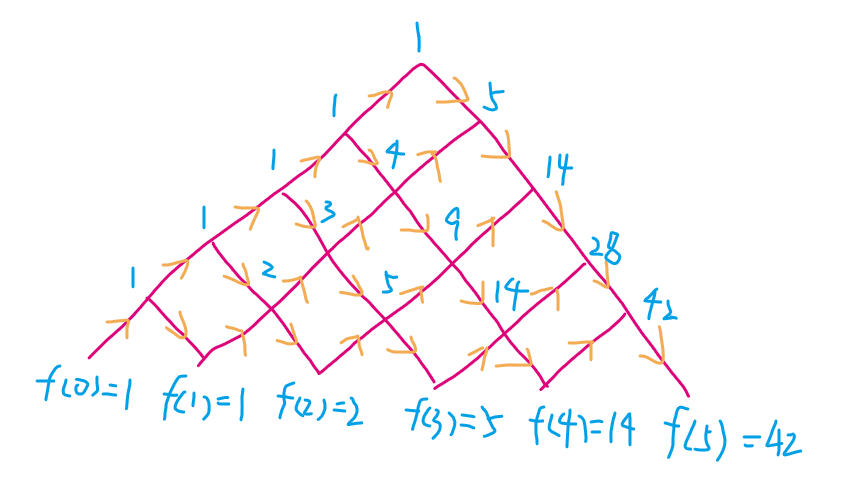 1
1 5
1 4 14
1 3 9 28
1 2 5 14 42
f(0)=1 f(1)=1 f(2)=2 f(3)=5 f(4)=14 f(5)=42